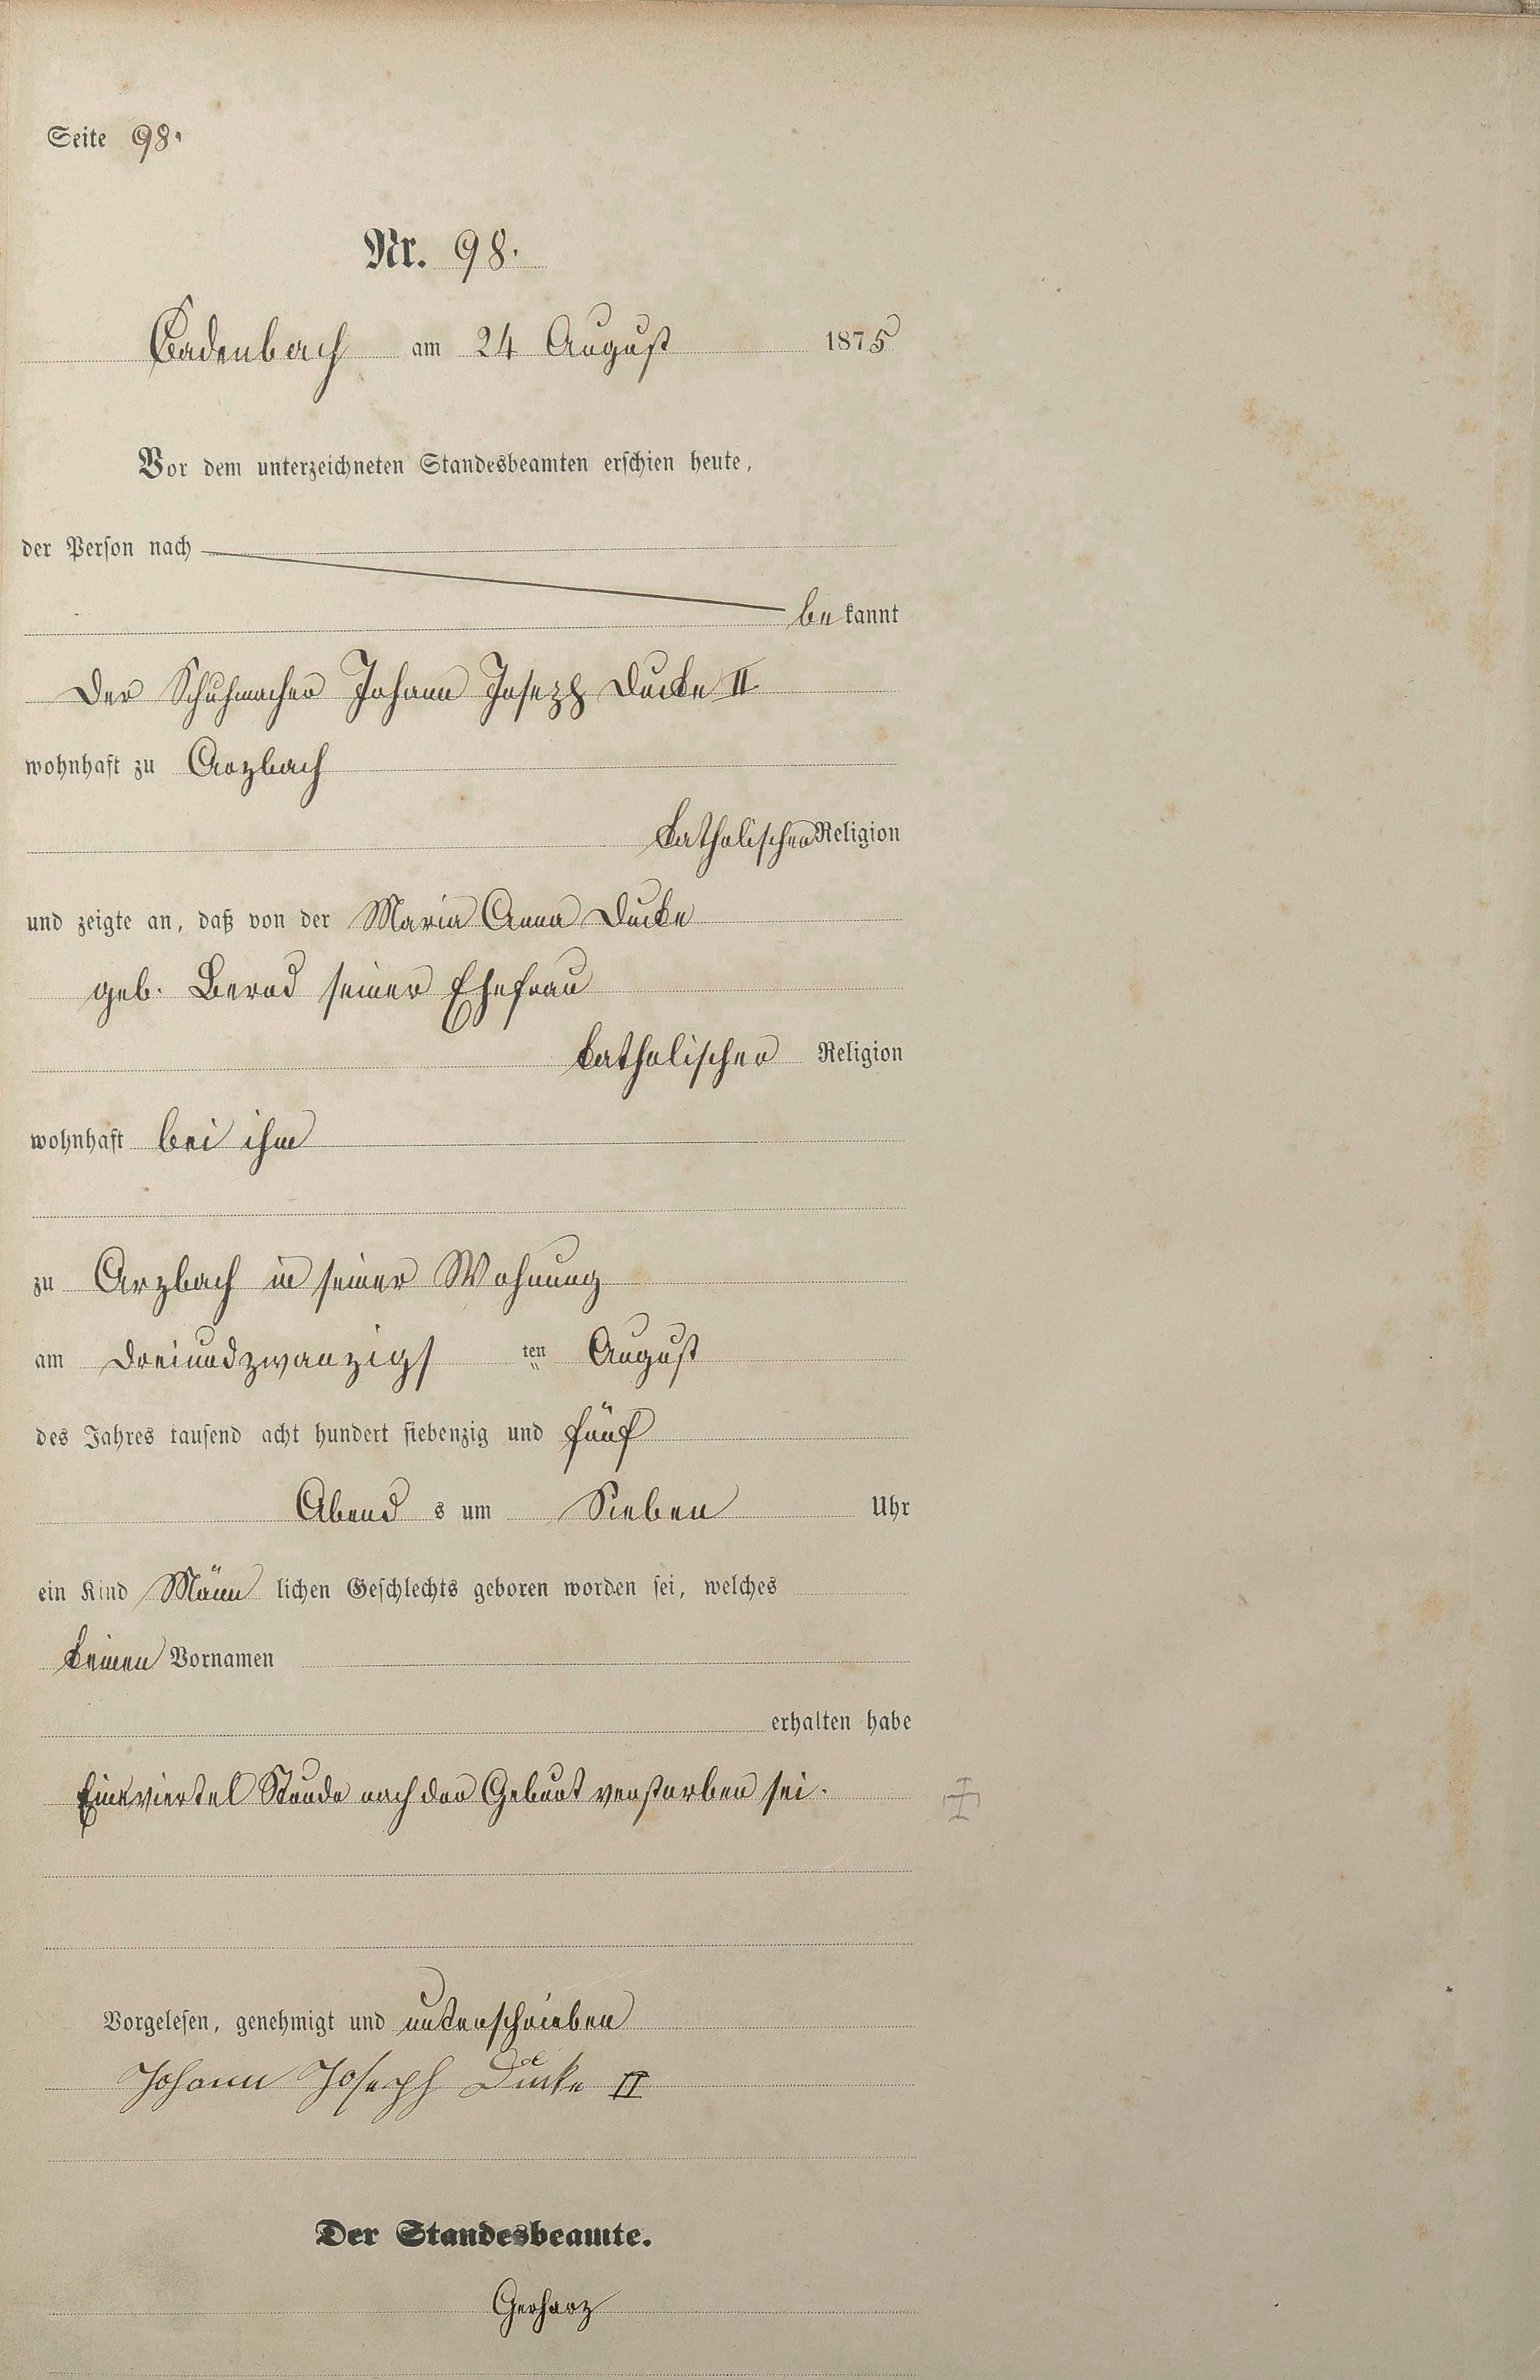 Seite 98.
Nr. 98.
Cadenbach am 24 August 1875
Vor dem unterzeichneten Standesbeamten erschien heute,
der Person nach
bekannt
der Schuhmacher Johann Joseph Ducke II
wohnhaft zu Arzbach
katholischer Religion
und zeigte an, daß von der Maria Anna Ducke
geb. Bernd seiner Ehefrau
katholischer Religion
wohnhaft bei ihm
zu Arzbach in seiner Wohnung
am dreiundzwanzigsten August
des Jahres tausend acht hundert siebenzig und fünf
Abends um Sieben Uhr
ein Kind Männlichen Geschlechts geboren worden sei, welches
keinen Vornamen
erhalten habe
Eineviertel Stunde nach der Geburt verstorben sei.
Vorgelesen, genehmigt und unterschrieben
Johann Joseph Ducke II
Der Standesbeamte.
Gerharz